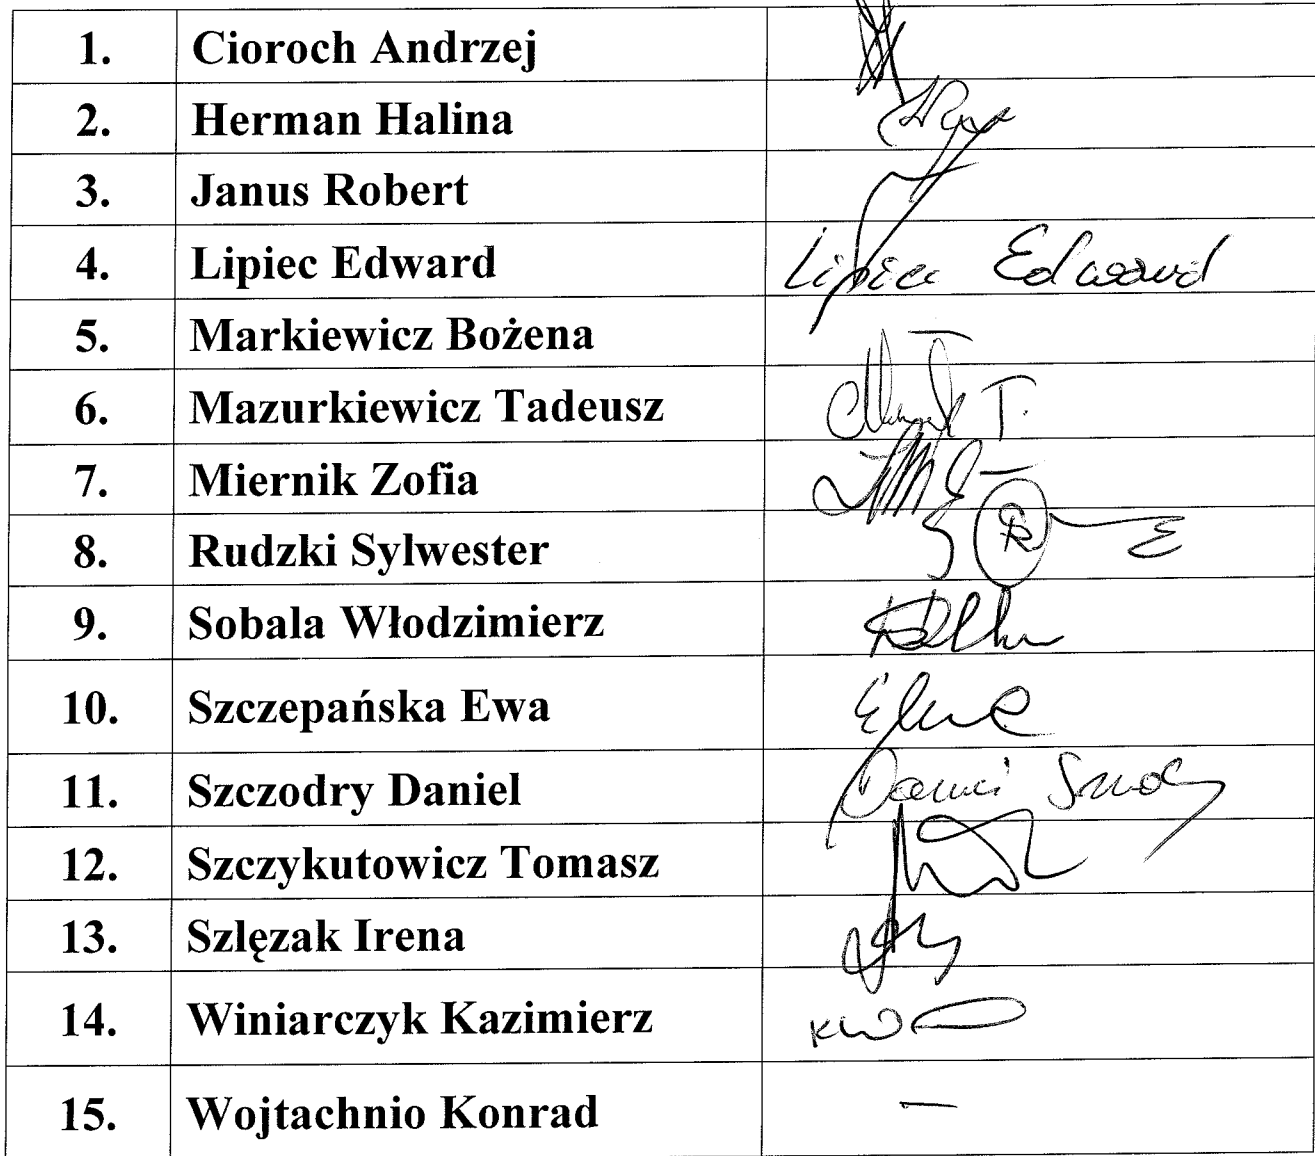 1. Cioroch Andrzej
2. Herman Halina
3. Janus Robert
4. Lipiec Edward Lipiec Edward
5. Markiewicz Bożena
6. Mazurkiewicz Tadeusz T.
7. Miernik Zofia
8. Rudzki Sylwester
9. Sobala Włodzimierz
10. Szczepańska Ewa
11. Szczodry Daniel Daniel
12. Szczykutowicz Tomasz
13. Szlęzak Irena
14. Winiarczyk Kazimierz KW
15. Wojtachnio Konrad –